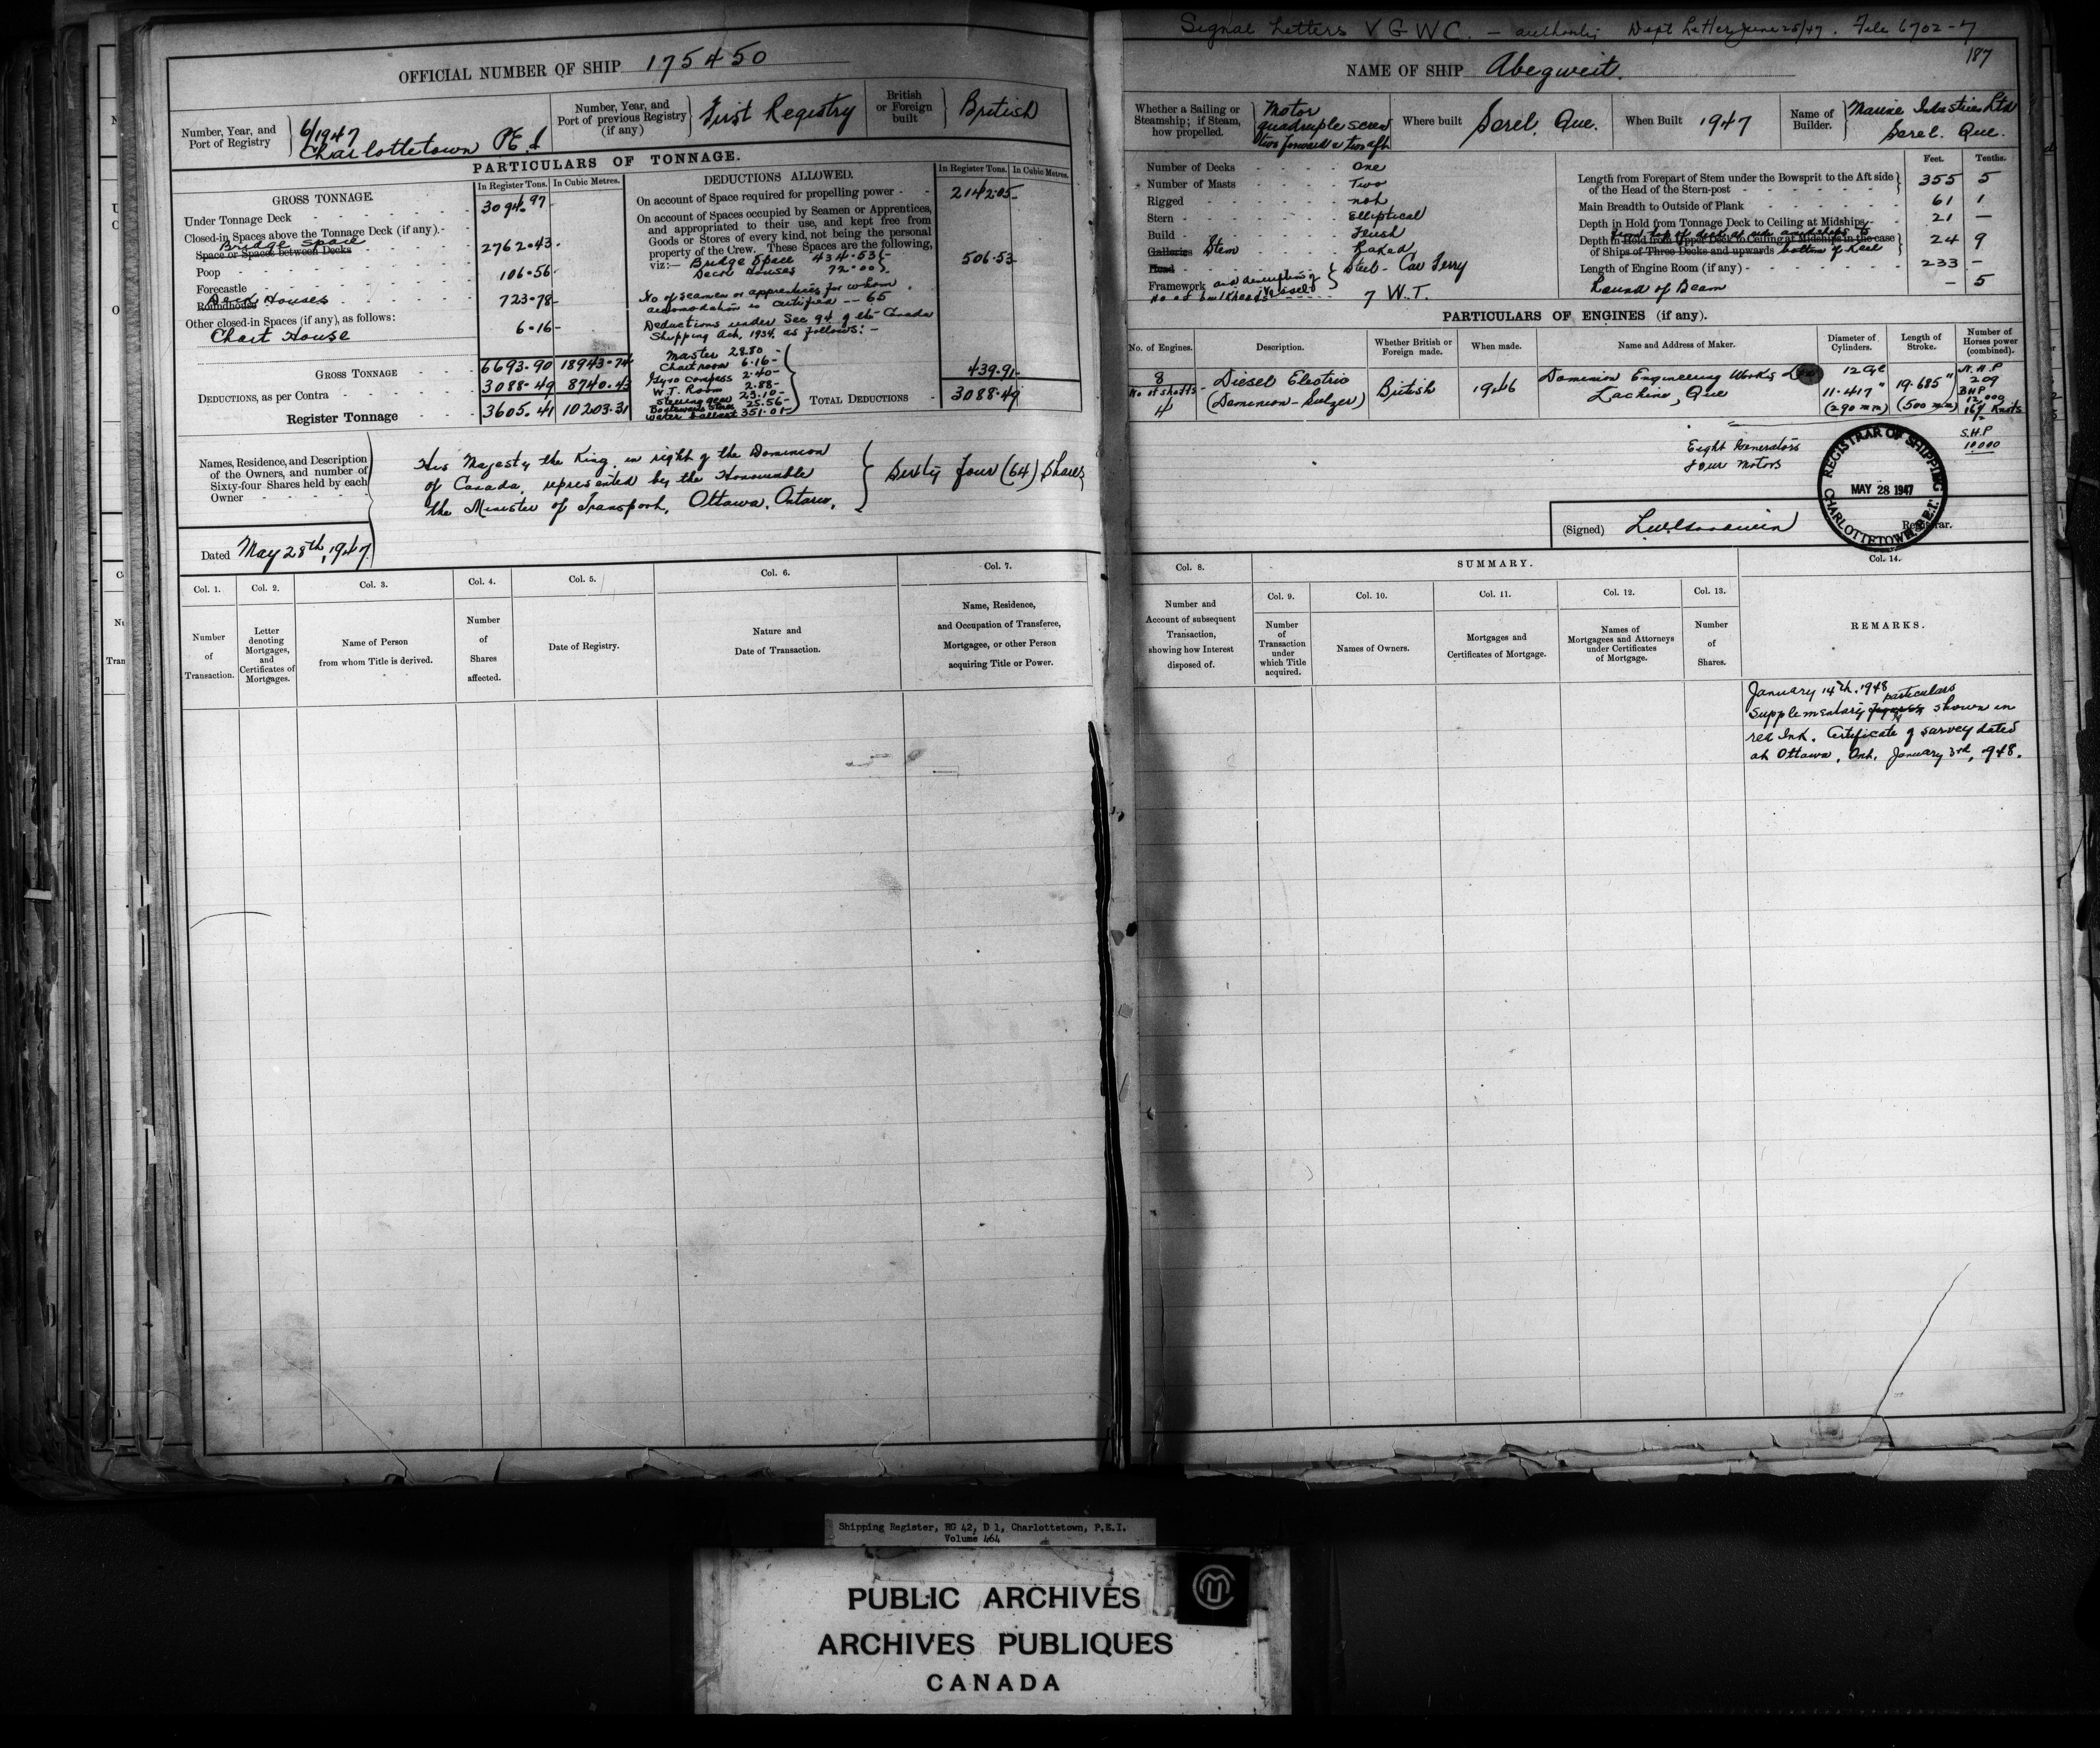 OFFICIAL NUMBER OF SHIP 175450
Number, Year, and Port of Registry
6/1947
Charlottetown P.E.I
Number, Year, and Port of previous Registry (if any)
First Registry
British or Foreign built
British
PARTICULARS OF TONNAGE.
GROSS TONNAGE.
In Register Tons. In Cubic Metres.
Under Tonnage Deck 3094.97
Closed-in Spaces above the Tonnage Deck (if any).
Bridge Space
Space or Spaces between Decks 2762.43
Poop
Forecastle 106.56
Deck Houses
Roundhouse 723.78
Other closed-in Spaces (if any), as follows:
Chart House 6.16
GROSS TONNAGE 6693.90 18943.74
DEDUCTIONS, as per Contra 3088.49 8740.43
Register Tonnage 3605.41 10203.31
DEDUCTIONS ALLOWED.
In Register Tons. In Cubic Metres.
On account of Space required for propelling power 2142.05
On account of Spaces occupied by Seamen or Apprentices,
and appropriated to their use, and kept free from
Goods or Stores of every kind, not being the personal
property of the Crew. These Spaces are the following,
viz:— Bridge Space 434.53
Deck Houses 72.00
506.53
No of seamen or apprentices for whom
accomodation is certified -- 65
Deductions under Sec 94 of the Canada
Shipping Act, 1934, as follows: -
Master 28.80
Chartroom 6.16
Gyro compass 2.40
W.T. Room 2.88
Steering gear 23.10
Boatswains Stores 25.56
Water ballast 351.01
439.91
TOTAL DEDUCTIONS 3088.49
Names, Residence, and Description
of the Owners, and number of
Sixty-four Shares held by each
Owner
His Majesty the King in right of the Dominion
of Canada, represented by the Honourable
the Minister of Transport, Ottawa, Ontario,
Sixty four (64) Shares
Dated May 28th, 1947
Col. 1. Col. 2. Col. 3. Col. 4. Col. 5. Col. 6. Col. 7.
Number of Transaction.
Letter denoting Mortgages, and Certificates of Mortgages.
Name of Person from whom Title is derived.
Number of Shares affected.
Date of Registry.
Nature and Date of Transaction.
Name, Residence, and Occupation of Transferee, Mortgagee, or other Person acquiring Title or Power.
Signal Letters V G W C. - authority Dept Letter June 25/47. File 6702-7
187
NAME OF SHIP Abegweit.
Whether a Sailing or Steamship; if Steam, how propelled.
Motor
quadruple screw
two forward & two aft
Where built Sorel, Que.
When Built 1947
Name of Builder.
Marine Industries Ltd
Sorel. Que.
Number of Decks One
Number of Masts Two
Rigged not
Stern Elliptical
Build Flush
Galleries Stem Raked
Head
Framework and description of vessel Steel - Car Ferry
No of bulkheads 7 W.T.
Feet. Tenths.
Length from Forepart of Stem under the Bowsprit to the Aft side
of the Head of the Stern-post 355 5
Main Breadth to Outside of Plank 61 1
Depth in Hold from Tonnage Deck to Ceiling at Midships 21 —
from top of deck at side amidships to
Depth in Hold from Upper Deck to Ceiling at Midships in the case
of Ships of Three Decks and upwards bottom of Keel 24 9
Length of Engine Room (if any) 233 -
Round of Beam - 5
PARTICULARS OF ENGINES (if any).
No. of Engines. Description. Whether British or Foreign made. When made. Name and Address of Maker. Diameter of Cylinders. Length of Stroke. Number of Horses power (combined).
8
No of shafts
4
Diesel Electric
(Dominion-Sulzer)
British
1946
Dominion Engineering Works
Lachine, Que
12 Cyl
11.417"
(290 mm)
19.685"
(500 mm)
N.H.P
209
BHP
12,000
16½ Knots
S.H.P
10,000
Eight Generators
Four Motors
REGISTRAR OF SHIPPING
MAY 28 1947
CHARLOTTETOWN, P.E.I.
(Signed)
Registrar.
Col. 8.
SUMMARY.
Col. 9. Col. 10. Col. 11. Col. 12. Col. 13. Col. 14.
Number and Account of subsequent Transaction, showing how Interest disposed of.
Number of Transaction under which Title acquired.
Names of Owners.
Mortgages and Certificates of Mortgage.
Names of Mortgagees and Attorneys under Certificates of Mortgage.
Number of Shares.
REMARKS.
January 14th. 1948
particulars
Supplementary figures shown in
red Ink. Certificate of survey dated
at Ottawa, Ont, January 3rd, 1948.
Shipping Register, RG 42, D 1, Charlottetown, P.E.I.
Volume 464
PUBLIC ARCHIVES
ARCHIVES PUBLIQUES
CANADA